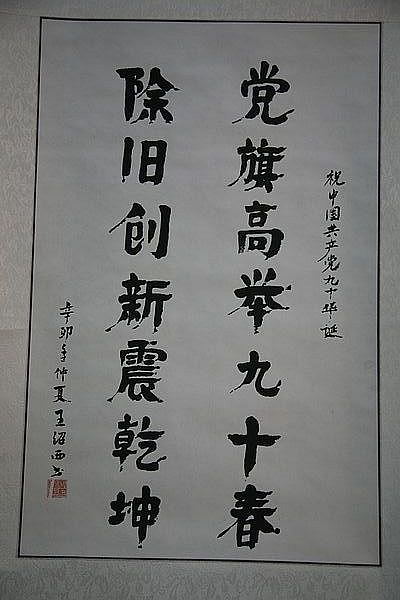 祝中国共产党九十华诞
党旗高举九十春
除旧创新震乾坤
辛卯年仲夏王绍西书